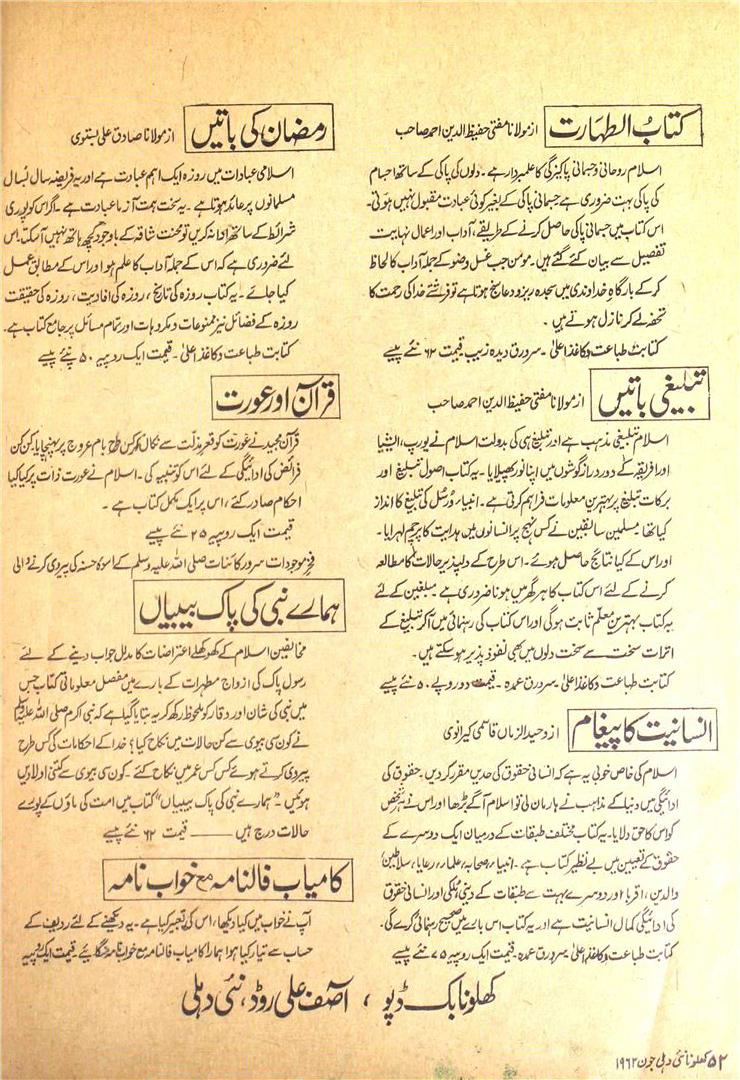 کتابُ الطہارت از مولانا مفتی حفیظ الدین احمد صاحب
اسلام روحانی و جسمانی پاکیزگی کا علمبردار ہے۔ دلوں کی پاکی کے ساتھ اجسام
کی پاکی بہت ضروری ہے جسمانی پاکی کے بغیر کوئی عبادت مقبول نہیں ہوتی۔
اس کتاب میں جسمانی پاکی حاصل کرنے کے طریقے، آداب اور اعمال نہایت
تفصیل سے بیان کئے گئے ہیں۔ مومن جب غسل و وضو کے جملہ آداب کا لحاظ
کر کے بارگاہِ خداوندی میں سجدہ ریز و دعا سنج ہوتا ہے تو فرشتے خدا کی رحمت کا
تحفہ لے کر نازل ہوتے ہیں۔
کتابت طباعت و کاغذ اعلیٰ۔ سرورق دیدہ زیب قیمت ۶۲ نئے پیسے
تبلیغی باتیں از مولانا مفتی حفیظ الدین احمد صاحب
اسلام تبلیغی مذہب ہے اور تبلیغ ہی کی بدولت اسلام نے یورپ، ایشیا
اور افریقہ کے دور دراز گوشوں میں اپنا نور پھیلایا۔ یہ کتاب اصول تبلیغ اور
برکات تبلیغ پر بہترین معلومات فراہم کرتی ہے۔ انبیاء و رُسل کی تبلیغ کا انداز
کیا تھا۔ مسلمین سابقین نے کس نہج پر انسانوں میں ہدایت کا پرچم لہرایا۔
اور اس کے کیا نتائج حاصل ہوئے۔ اس طرح کے دلپذیر حالات کا مطالعہ
کرنے کے لئے اس کتاب کا ہر گھر میں ہونا ضروری ہے۔ مبلغین کے لئے
یہ کتاب بہترین معلّم ثابت ہوگی اور اس کتاب کی رہنمائی میں آکر تبلیغ کے
اثرات سخت سے سخت دلوں میں بھی نفوذ پذیر ہو سکتے ہیں۔
کتابت طباعت و کاغذ اعلیٰ۔ سرورق عمدہ۔ قیمت دو روپے ۵۰ نئے پیسے
انسانیت کا پیغام از وحید الزماں قاسمی کیرانوی
اسلام کی خاص خوبی یہ ہے کہ انسانی حقوق کی حدیں مقرر کر دیں۔ حقوق کی
ادائیگی میں دنیا کے مذاہب نے ہار مان لی تو اسلام آگے بڑھا اور اس نے ہر شخص
کو اس کا حق دلایا۔ یہ کتاب مختلف طبقات کے درمیان ایک دوسرے کے
حقوق کے تعیین میں بے نظیر کتاب ہے۔ انبیاء، صحابہ، علماء، رعایا، سلاطین،
والدین، اقرباء اور دوسرے بہت سے طبقات کے دینی، ملکی اور انسانی حقوق
کی ادائیگی کمال انسانیت ہے اور یہ کتاب اس بارے میں صحیح رہنمائی کرے گی۔
کتابت طباعت و کاغذ اعلیٰ۔ سرورق عمدہ۔ قیمت ایک روپیہ ۷۵ نئے پیسے
رمضان کی باتیں از مولانا صادق علی بستوی
اسلامی عبادات میں روزہ ایک اہم عبادت ہے اور یہ فریضہ سال بسال
مسلمانوں پر عائد ہوتا ہے۔ یہ سخت ہمت آزما عبادت ہے۔ اگر اس کو پوری
شرائط کے ساتھ ادا نہ کریں تو محنت شاقہ کے باوجود کچھ ہاتھ نہیں آسکتا۔ اس
لئے ضروری ہے کہ اس کے جملہ آداب کا علم ہو اور اس کے مطابق عمل
کیا جائے۔ یہ کتاب روزہ کی تاریخ، روزہ کی افادیت، روزہ کی حقیقت
روزہ کے فضائل نیز ممنوعات و مکروہات اور تمام مسائل پر جامع کتاب ہے۔
کتابت طباعت و کاغذ اعلیٰ۔ قیمت ایک روپیہ ۵۰ نئے پیسے
قرآن اور عورت
قرآن مجید نے عورت کو قعر مذلّت سے نکال کر کس طرح بام عروج پر پہنچایا، کن کن
فرائض کی ادائیگی کے لئے اس کو تنبیہ کی۔ اسلام نے عورت ذات پر کیا کیا
احکام صادر کئے، اس پر ایک مکمل کتاب ہے۔
قیمت ایک روپیہ ۲۵ نئے پیسے
فخرِ موجودات سرور کائنات صلی اللہ علیہ وسلم کے اسوۂ حسنہ کی پیروی کرنے والی
ہمارے نبی کی پاک بیبیاں
مخالفین اسلام کے کھوکھلے اعتراضات کا مدلل جواب دینے کے لئے
رسول پاک کی ازواج مطہرات کے بارے میں مفصل معلوماتی کتاب جس
میں نبی کی شان اور وقار کو ملحوظ رکھ کر یہ بتایا گیا ہے کہ نبی اکرم صلی اللہ علیہ وسلم
نے کون سی بیوی سے کن حالات میں نکاح کیا؟ خدا کے احکامات کی کس طرح
پیروی کرتے ہوئے کس کس عمر میں نکاح کئے۔ کون سی بیوی سے کتنی اولادیں
ہوئیں۔ "ہمارے نبی کی پاک بیبیاں" کتاب میں امت کی ماؤں کے پورے
حالات درج ہیں ——— قیمت ۶۲ نئے پیسے
کامیاب فالنامہ مع خواب نامہ
آپ نے خواب میں کیا دیکھا، اس کی تعبیر کیا ہے۔ یہ دیکھنے کے لئے ردیف کے
حساب سے تیار کیا ہوا ہمارا کامیاب فالنامہ مع خواب نامہ منگائیے۔ قیمت ایک روپیہ
کھلونا بک ڈپو ، آصف علی روڈ، نئی دہلی
۵۲ کھلونا نئی دہلی جون ۱۹۶۲ء